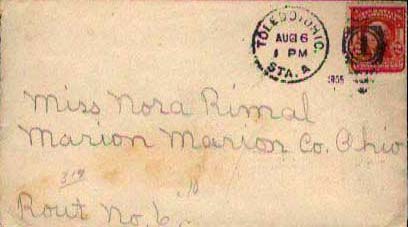 TOLEDO, OHIO.
AUG 6
1 PM
STA. A
1
Miss Nora Rimal
Marion Marion Co. Ohio
319
Rout No. 6.